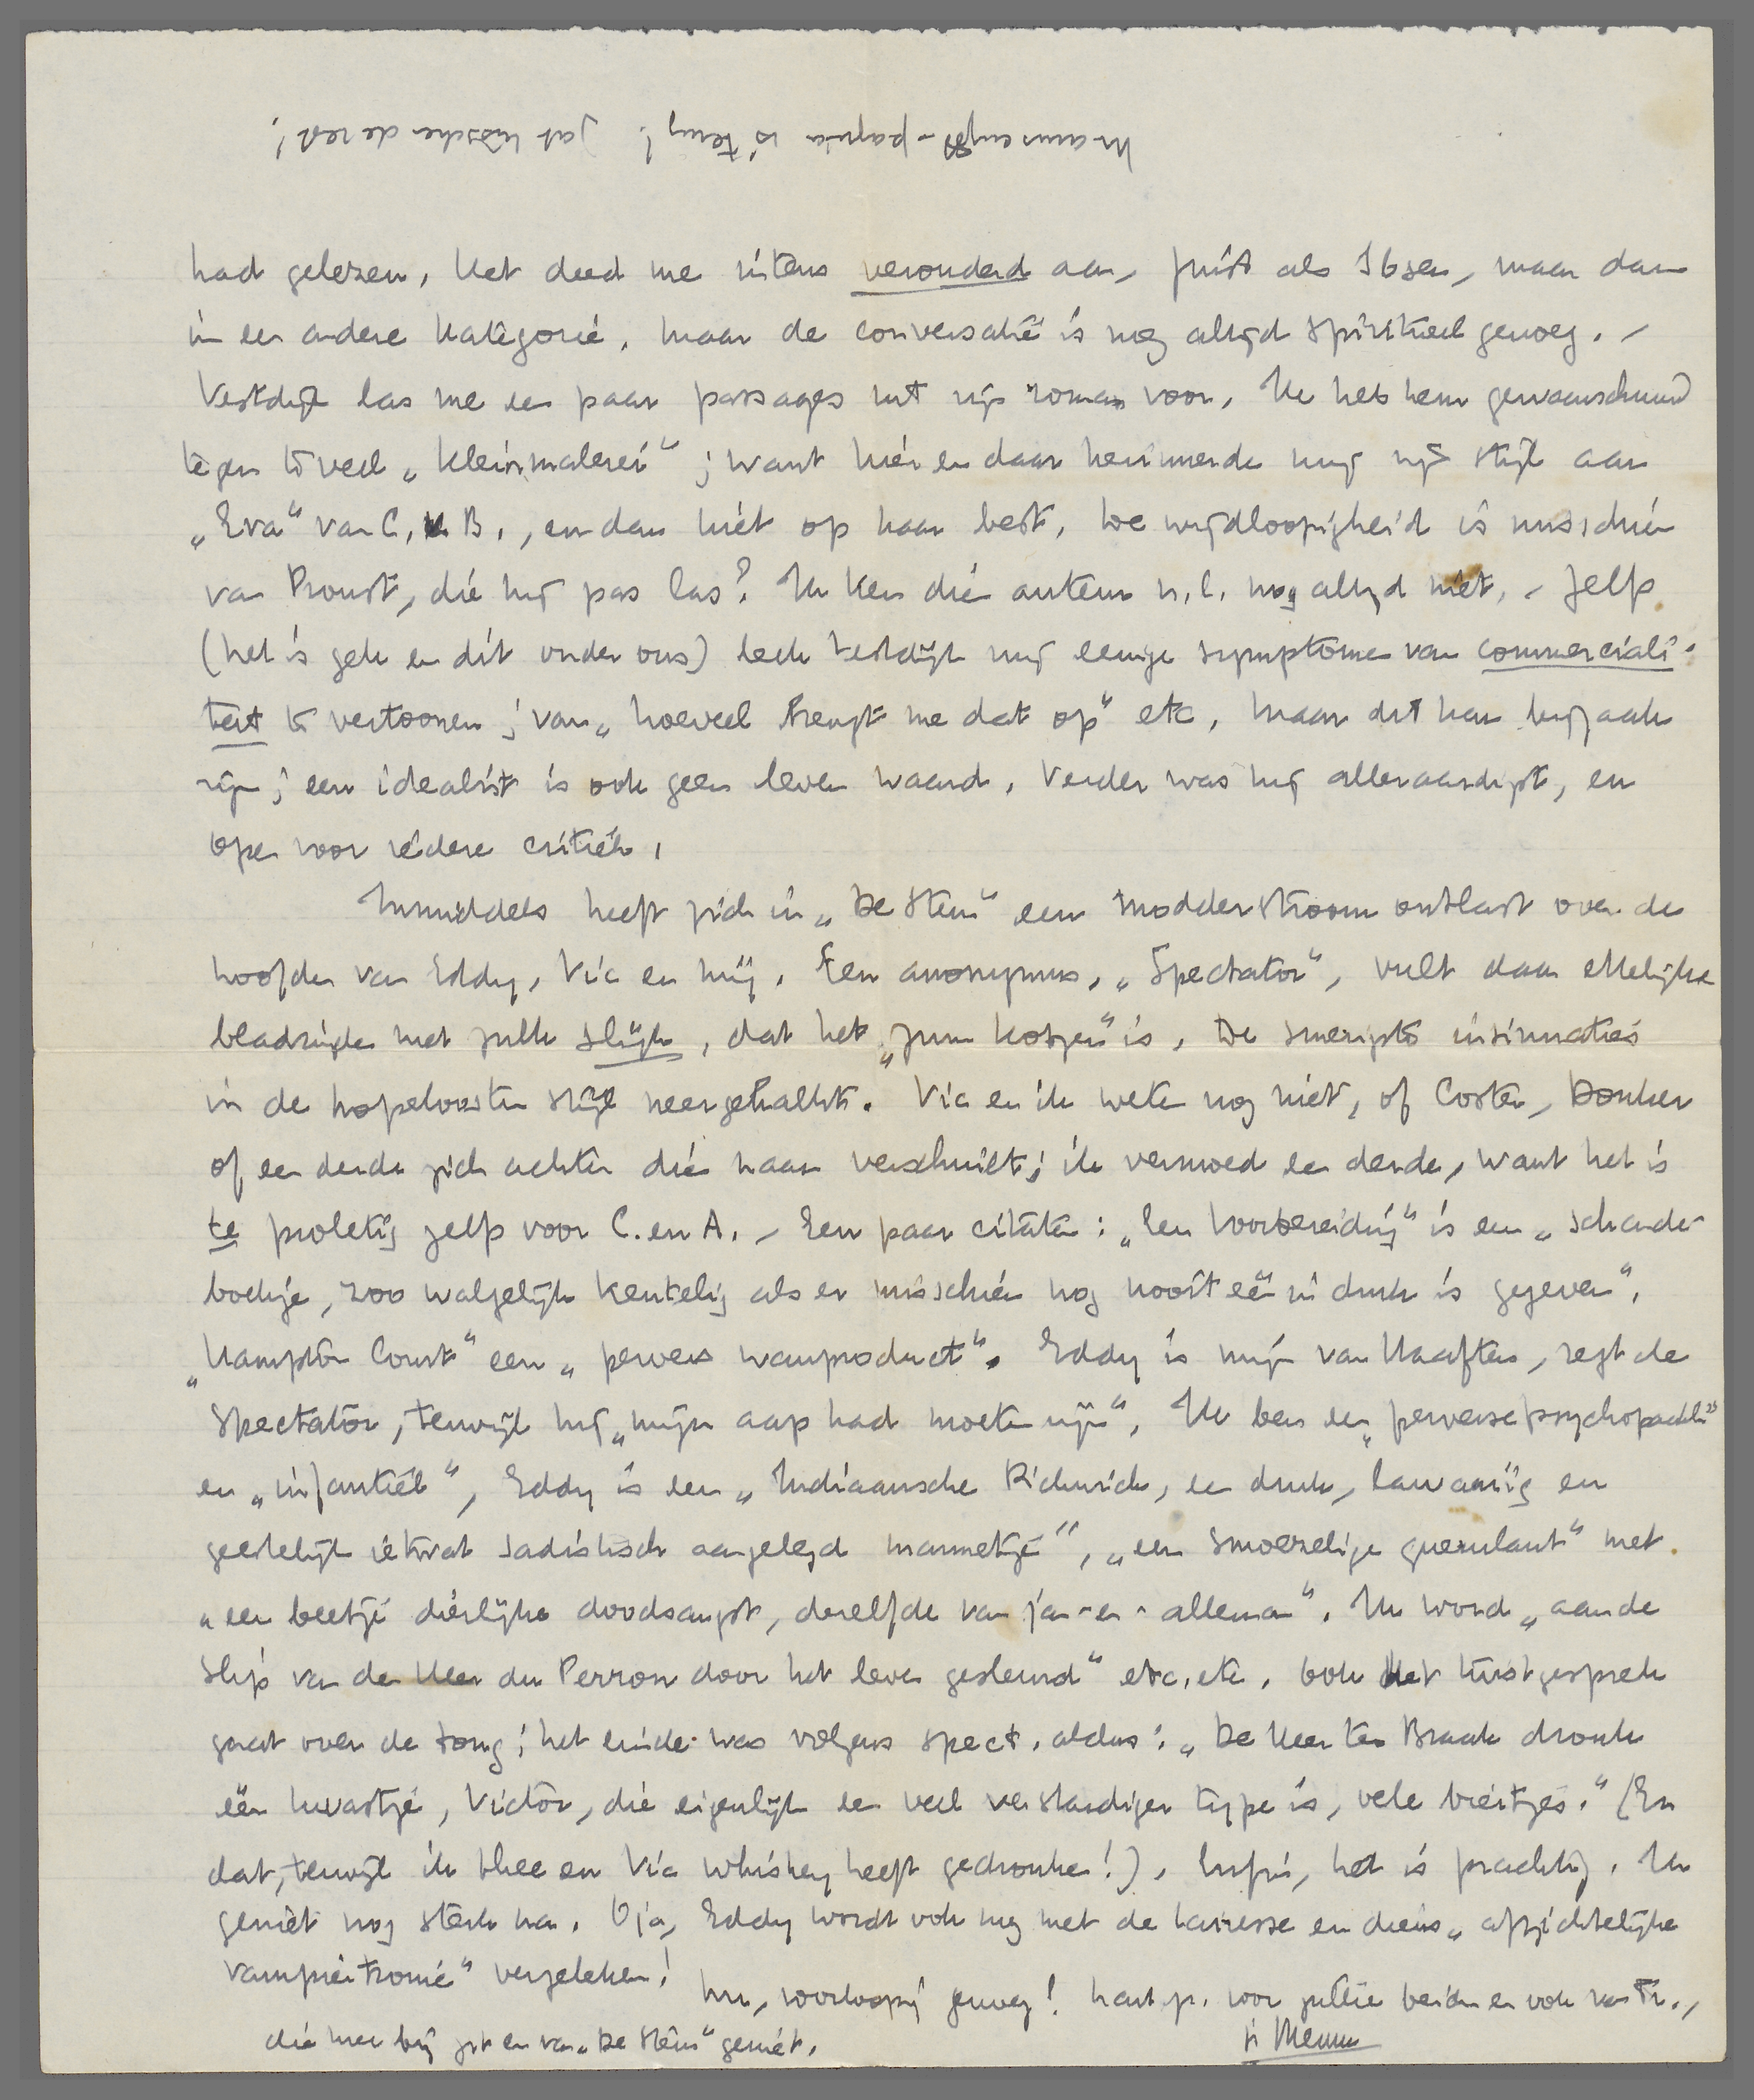 Manuscript-pagina is terug! Jat tusschen de rest!
had gelezen. Het deed me intens verouderd aan, juist als Ibsen, maar dan
in een andere kategorie. Maar de conversatie is nog altijd spiritueel genoeg. –
Vestdijk las me een paar passages uit zijn roman voor. Ik heb hem gewaarschuwd
tegen te veel „Kleinmalerei"; want hier en daar herinnerde mij zijn stijl aan
„Eva" van C. v. B., en dan niet op haar best. De wijdloopigheid is misschien
van Proust, die hij pas las? Ik ken dien auteur n.l. nog altijd niet. – Zelfs
(het is gek en dit onder ons) leek Vestdijk mij eenige symptomen van commerciali-
teit te vertoonen; van „hoeveel brengt me dat op" etc. Maar dit kan bijzaak
zijn; een idealist is ook geen leven waard. Verder was hij alleraardigst, en
open voor iedere critiek.
Inmiddels heeft zich in „De Stem" een modderstroom ontlast over de
hoofden van Eddy, Vic en mij. Een anonymus, „Spectator", vult daar ettelijke
bladzijden met zulk slijk, dat het „zum kotzen" is. De smerigste insinuaties
in de hopelooste stijl neergekalkt. Vic en ik weten nog niet, of Coster, Donker
of een derde zich achter dien naam verschuilt; ik vermoed een derde, want het is
te proletig zelfs voor C. en A. – Een paar citaten: „Een Voorbereiding" is een „schande-
boekje, zoo walgelijk kentelig als er misschien nog nooit een in druk is gegeven",
„Hampton Court" een „pervers wanproduct". Eddy is mijn van Haaften, zegt de
Spectator, terwijl hij „mijn aap had moeten zijn". Ik ben een „perverse psychopaath"
en „infantiel", Eddy is een „Indiaansche Pickwick, een druk, lawaaiig en
geestelijk ietwat sadistisch aangelegd mannetje", „een smoezelige querulant" met
„een beetje dierlijke doodsangst, dezelfde van jan-en-alleman". Ik word „aan de
slip van den Heer du Perron door het leven gesleurd" etc. etc. Ook het twistgesprek
gaat over de tong; het einde was volgens Spect. aldus: „De Heer ter Braak dronk
één kwastje, Victor, die eigenlijk een veel verstandiger type is, vele biertjes." (En
dat, terwijl ik thee en Vic whiskey heeft gedronken!). Enfin, het is prachtig. Ik
geniet nog sterk na. O ja, Eddy wordt ook nog met de Lairesse en diens „afzichtelijke
vampiertronie" vergeleken!
Nu, voorloopig genoeg! Hart. gr. voor jullie beiden en ook van Tr.,
die hier bij zit en van „De Stem" geniet.
je Menno